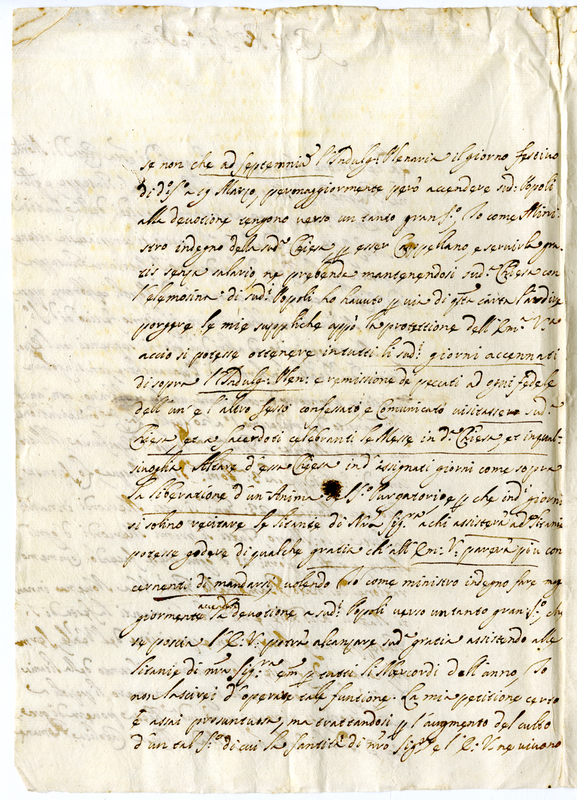 se non che ad septennium l'Indulg: Plenaria il giorno festivo
di d.º S.º a 19 Marzo, per maggiormente però accendere sud:ⁱ Popoli
alla devotione tengono verso un tanto gran S.º, Io come Mini-
stro indegno della sud.ª Chiesa p esser Cappellano, e servirla gra-
tis senza salario ne prebende mantenendosi sud.ª Chiesa con
l'elemosina di sud.ⁱ Popoli ho havuto p via di q.sta carta l'ardire
porgere le mie suppliche appò la protettione dell'Em.ª V.ra
acciò si potesse ottenere in tutti li sud.ⁱ giorni accennati
di sopra l'Indulg: Plen: e remissione de peccati ad ogni fedele
dell'un' e l'altro sesso confesato e Comunicato visitasse sud.ª
Chiesa et a sacerdoti celebranti le Messe in d.ª Chiesa, et in qual-
sivoglia Altare d'essa Chiesa in d.ⁱ assignati giorni come sopra
la liberatione d'un'Anima del S.º Purgatorio e p che in d.ⁱ giorni
si solino recitare le litanie di N.ra Sig.ra a chi assisterà ad litanie
potesse godere di qualche gratia ch'all'Em: V: parerà più con
cernenti di mandarsi, volendo Io come ministro indegno fare mag
giormente accender la devotione a sud.ⁱ Popoli verso un tanto gran S.º, che
se poscia l'E. V. potrà alcanzare sud.ª gratia assistendo alle
litanie di n.ra Sig.ra p tutti li Mercordi dell'anno, Io
non lascirei d'operare tale funtione. La mia petitione certo
è assai presuntuosa, ma trattandosi p l'augmento del culto
d'un tal S.º di cui la santità di n.ro Sig.re e l'E. V. ne vivono